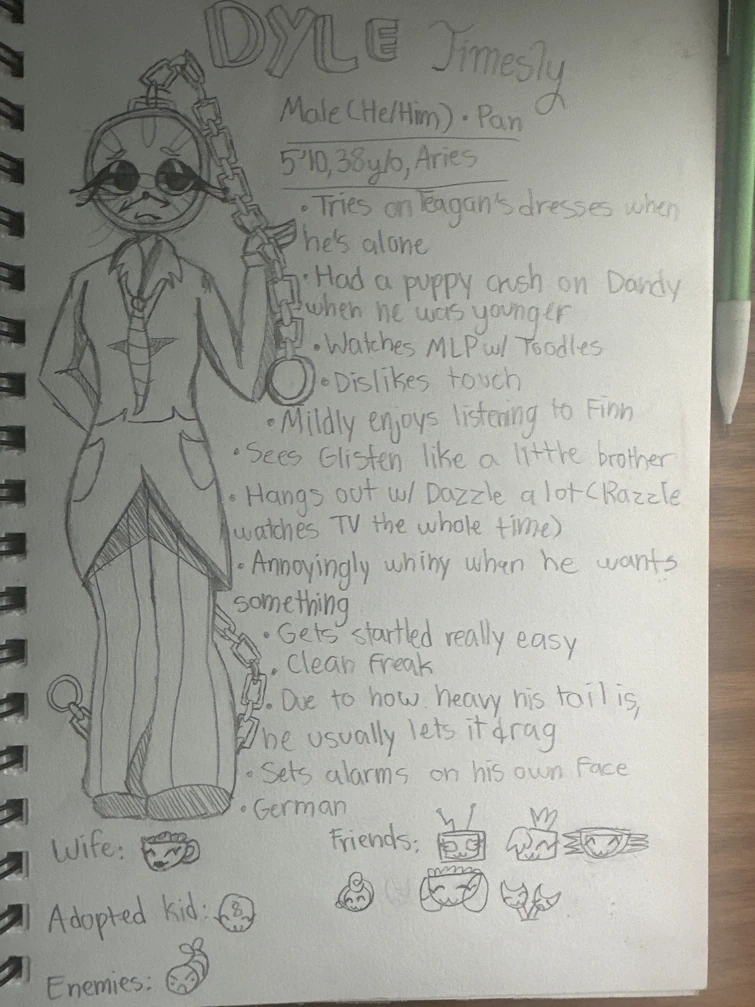 DYLE Timesly
Male (He/Him) • Pan
5'10, 38y/o, Aries
• Tries on Teagan's dresses when
he's alone
• Had a puppy crush on Dandy
when he was younger
• Watches MLP w/ Toodles
• Dislikes touch
• Mildly enjoys listening to Finn
• Sees Glisten like a little brother
• Hangs out w/ Dazzle a lot (Razzle
watches TV the whole time)
• Annoyingly whiny when he wants
something
• Gets startled really easy
• Clean Freak
• Due to how heavy his tail is,
he usually lets it drag
• Sets alarms on his own face
• German
Wife:
Friends:
Adopted kid: 8
Enemies: